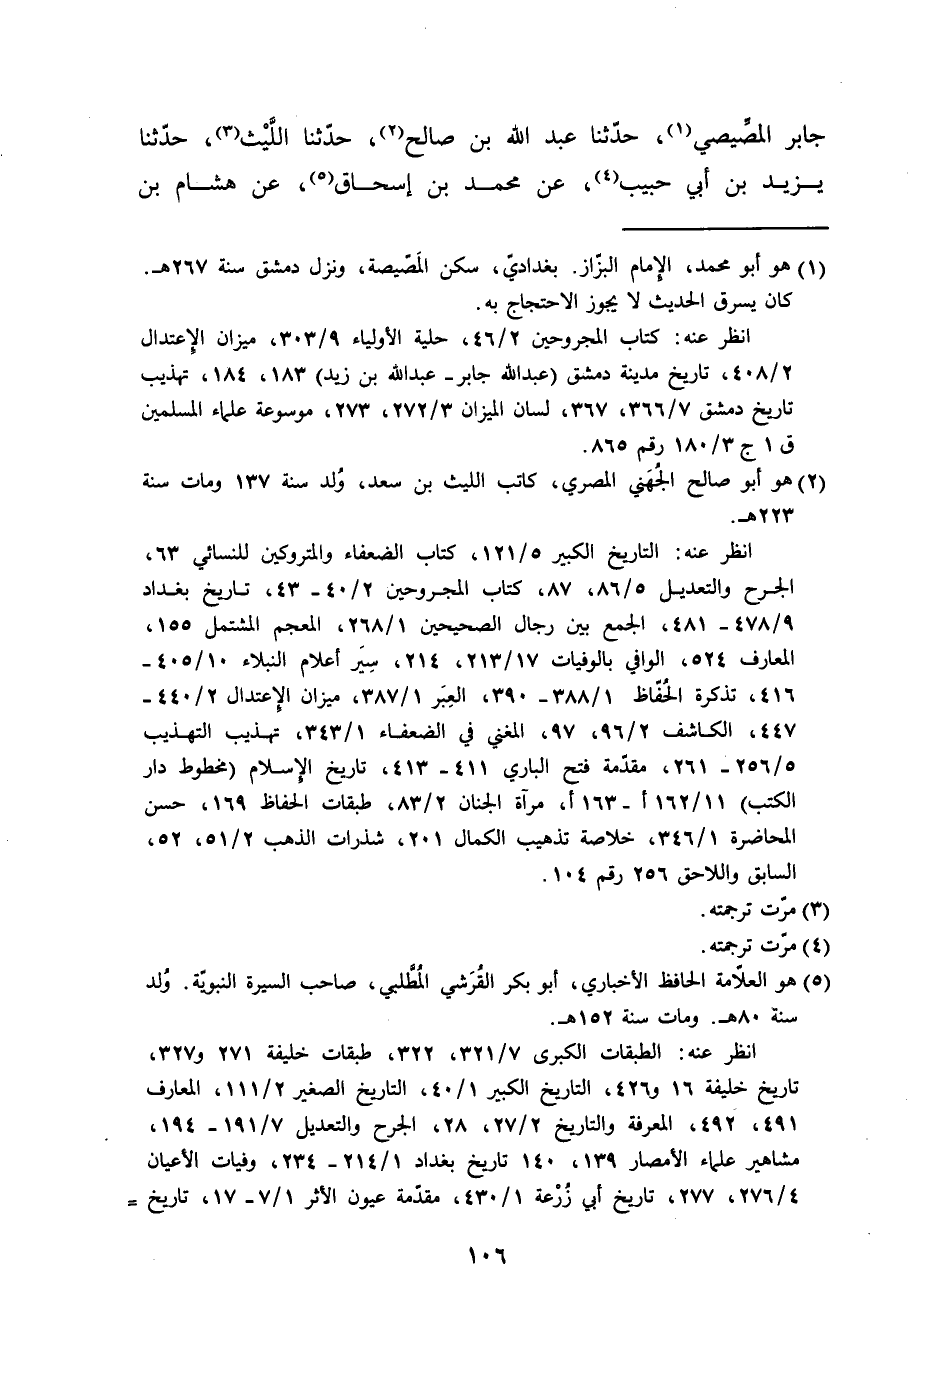 جابر المصِّيصي(١)، حدّثنا عبد الله بن صالح(٢)، حدّثنا اللَّيْث(٣)، حدّثنا
يـزيـد بن أبي حبيب(٤)، عن محمـد بن إسحـاق(٥)، عن هشـام بن
(١) هو أبو محمد، الإمام البزّاز. بغداديّ، سكن المَصّيصة، ونزل دمشق سنة ٢٦٧هـ.
كان يسرق الحديث لا يجوز الاحتجاج به.
انظر عنه: كتاب المجروحين ٤٦/٢، حلية الأولياء ٣٠٣/٩، ميزان الإعتدال
٤٠٨/٢، تاريخ مدينة دمشق (عبدالله جابر ـ عبدالله بن زيد) ١٨٣، ١٨٤، تهذيب
تاريخ دمشق ٣٦٦/٧، ٣٦٧، لسان الميزان ٢٧٢/٣، ٢٧٣، موسوعة علماء المسلمين
ق ١ ج ١٨٠/٣ رقم ٨٦٥.
(٢) هو أبو صالح الجُهَني المصري، كاتب الليث بن سعد، وُلد سنة ١٣٧ ومات سنة
٢٢٣هـ.
انظر عنه: التاريخ الكبير ١٢١/٥، كتاب الضعفاء والمتروكين للنسائي ٦٣،
الجـرح والتعديـل ٨٦/٥، ٨٧، كتاب المجـروحين ٤٠/٢ ـ ٤٣، تـاريخ بغـداد
٤٧٨/٩ ـ ٤٨١، الجمع بين رجال الصحيحين ٢٦٨/١، المعجم المشتمل ١٥٥،
المعارف ٥٢٤، الوافي بالوفيات ٢١٣/١٧، ٢١٤، سِيَر أعلام النبلاء ٤٠٥/١٠ ـ
٤١٦، تذكرة الحُفّاظ ٣٨٨/١ ـ ٣٩٠، العِبَر ٣٨٧/١، ميزان الإعتدال ٤٤٠/٢ ـ
٤٤٧، الكـاشف ٩٦/٢، ٩٧، المغني في الضعفـاء ٣٤٣/١، تهـذيب التهـذيب
٢٥٦/٥ ـ ٢٦١، مقدّمة فتح الباري ٤١١ ـ ٤١٣، تاريخ الإسـلام (مخطوط دار
الكتب) ١٦٢/١١ أ ـ ١٦٣ أ، مرآة الجنان ٨٣/٢، طبقات الحفاظ ١٦٩، حسن
المحاضرة ٣٤٦/١، خلاصة تذهيب الكمال ٢٠١، شذرات الذهب ٥١/٢، ٥٢،
السابق واللاحق ٢٥٦ رقم ١٠٤.
(٣) مرّت ترجمته.
(٤) مرّت ترجمته.
(٥) هو العلاّمة الحافظ الأخباري، أبو بكر القُرَشي المُطَّلبي، صاحب السيرة النبويّة. وُلد
سنة ٨٠هـ. ومات سنة ١٥٢هـ.
انظر عنه: الطبقات الكبرى ٣٢١/٧، ٣٢٢، طبقات خليفة ٢٧١ و٣٢٧،
تاريخ خليفة ١٦ و٤٢٦، التاريخ الكبير ٤٠/١، التاريخ الصغير ١١١/٢، المعارف
٤٩١، ٤٩٢، المعرفة والتاريخ ٢٧/٢، ٢٨، الجرح والتعديل ١٩١/٧ ـ ١٩٤،
مشاهير علماء الأمصار ١٣٩، ١٤٠ تاريخ بغداد ٢١٤/١ ـ ٢٣٤، وفيات الأعيان
٢٧٦/٤، ٢٧٧، تاريخ أبي زُرْعة ٤٣٠/١، مقدّمة عيون الأثر ٧/١ ـ ١٧، تاريخ =
١٠٦